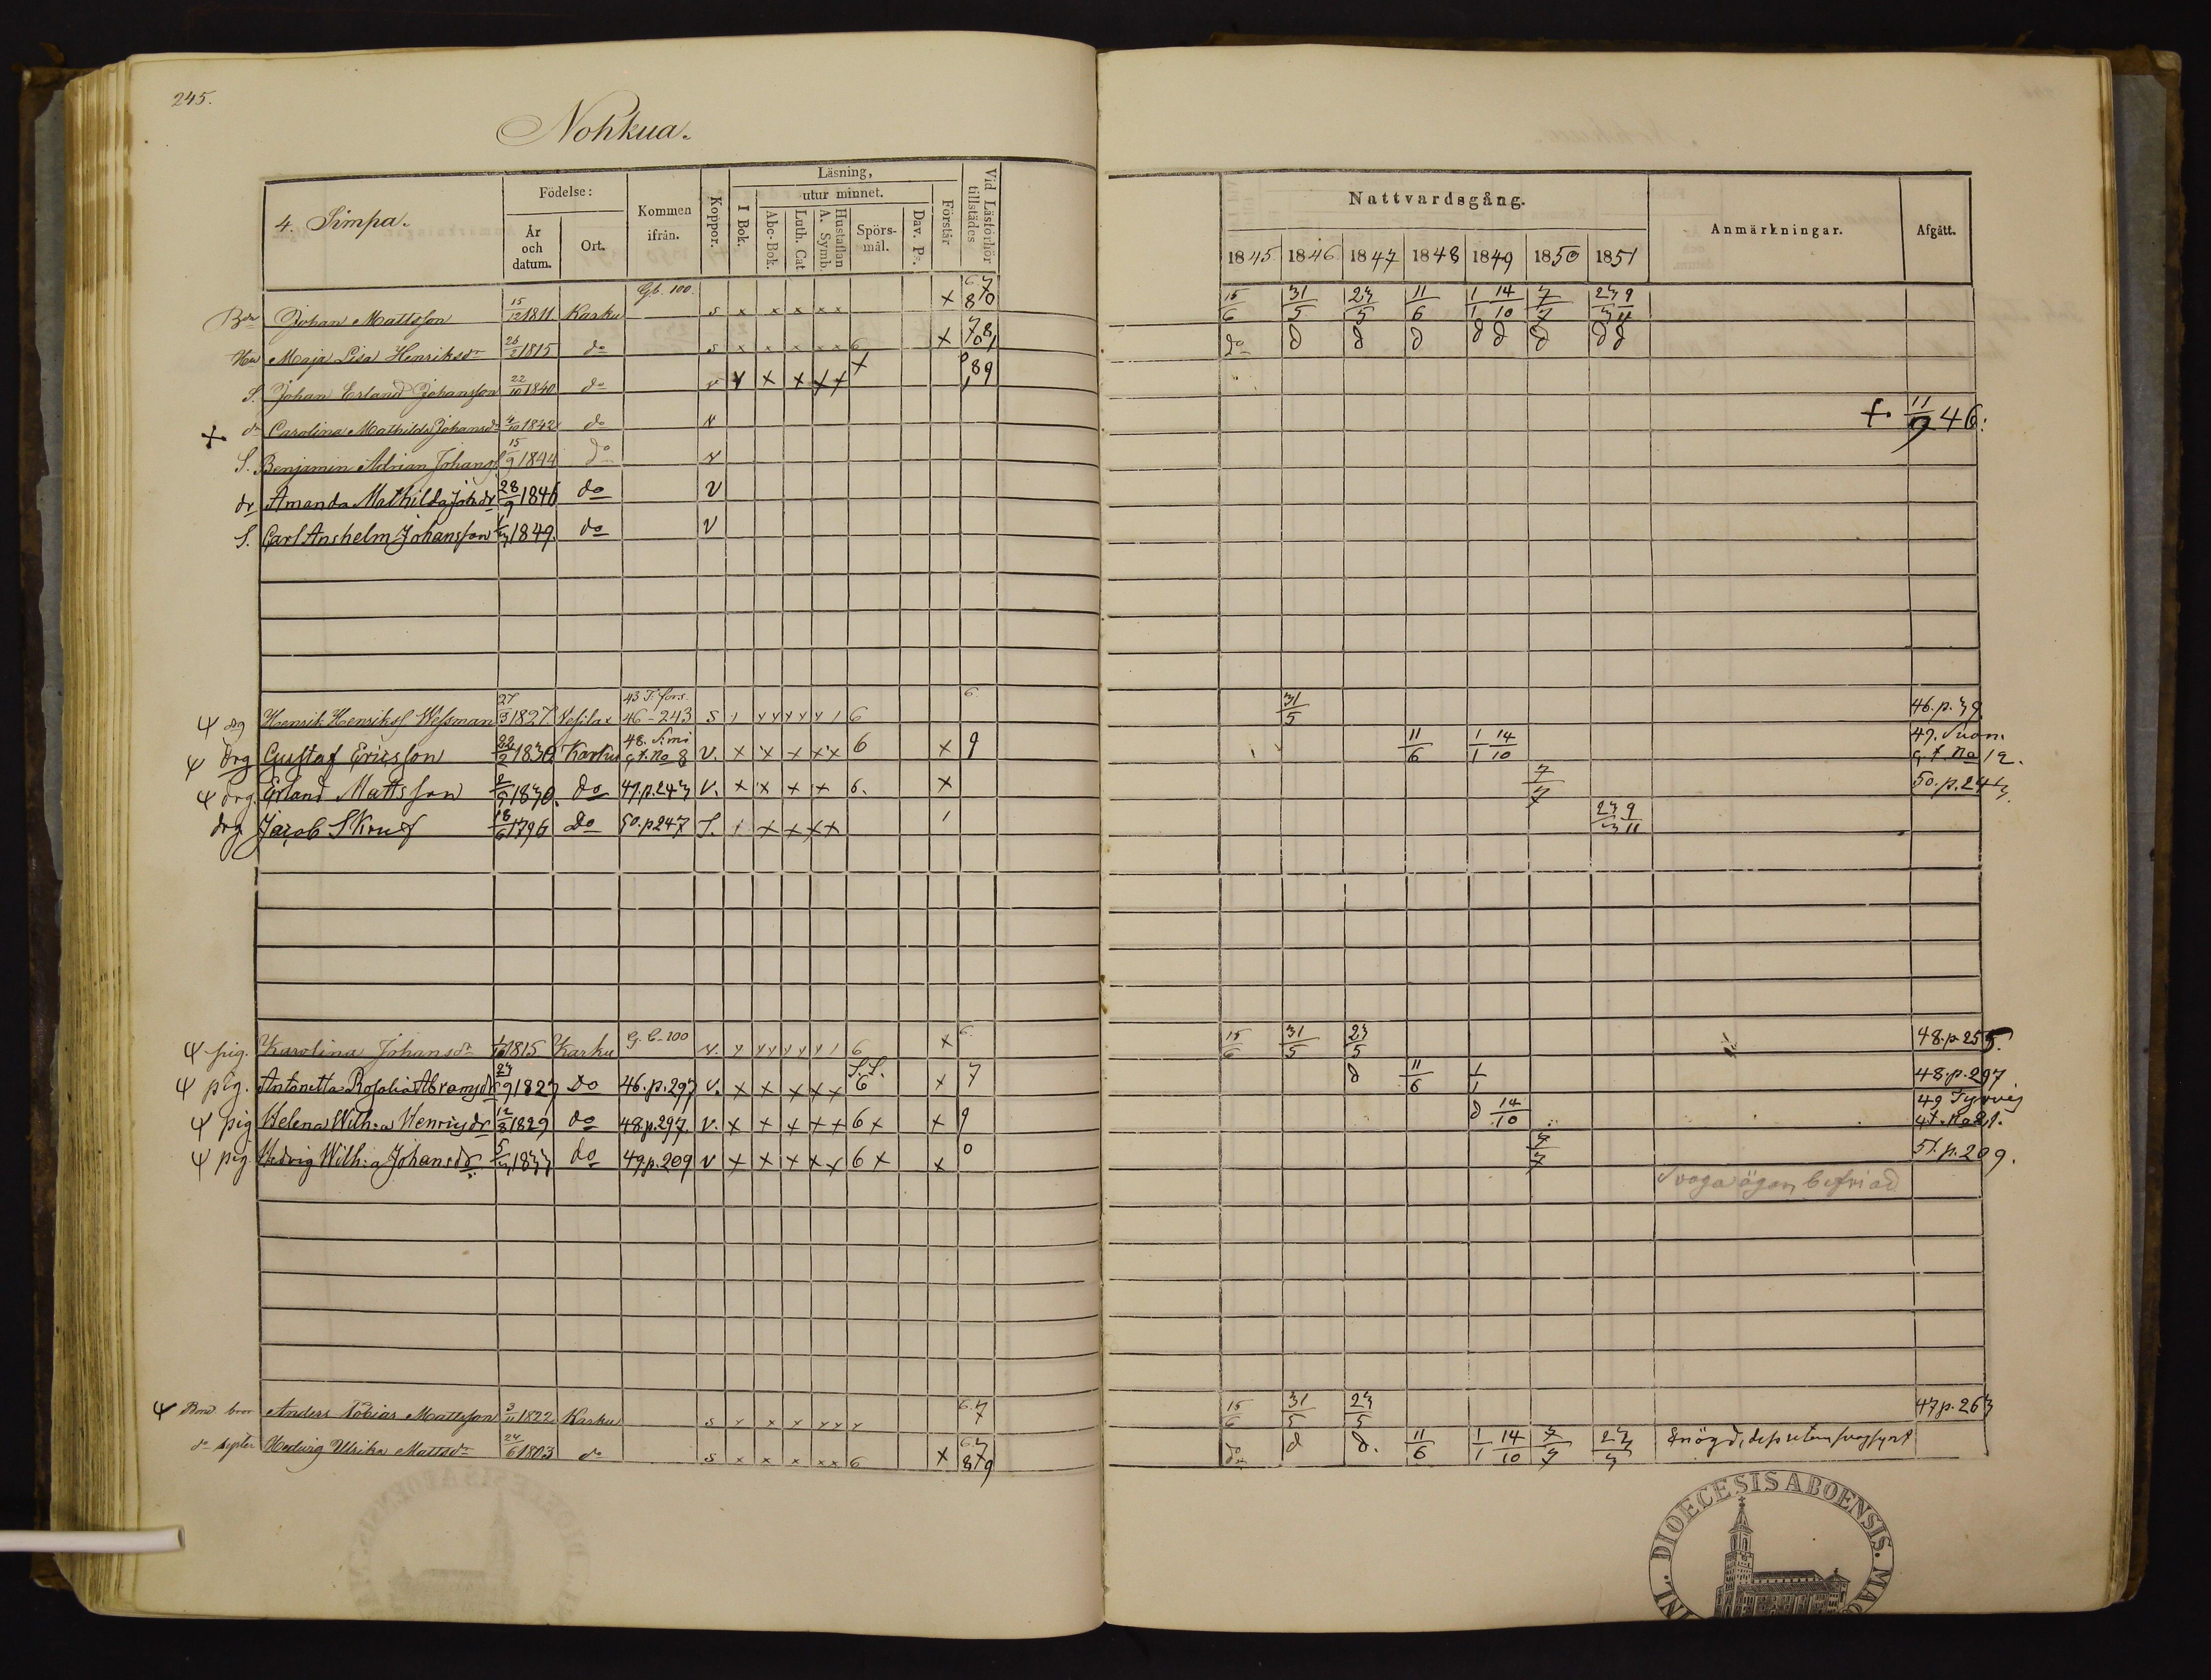 245.
Nohkua.
4. Simpa.
Födelse:
År och datum.
Ort.
Kommen ifrån.
Koppor.
Läsning,
I Bok.
utur minnet.
Abc-Bok.
Luth. Cat
Hustaflan A. Symb.
Spörsmål.
Dav. Ps.
Förstår
Vid Läsförhör tillstädes
Nattvardsgång.
1845 1846 1847 1848 1849 1850 1851
Anmärkningar.
Afgått.
Bdn Johan Mattsson 15/12 1811 Karku G.b. 100. s x x x x x x 6 7 8 9 0 15/6 31/5 23/5 11/6 1/1 14/10 7/7 23/3 9/11
Hu Maja Lisa Henriksdr 26/2 1815 do s x x x x x 6 x 7 8 0 1 do d d d d d d d d
S. Johan Erland Johansson 22/10 1840 do v x x x x x 8 9
+ dr Carolina Mathilda Johansdr 4/10 1842 do v +. 11/9 46.
S. Benjamin Adrian Johans 15/9 1844 do v
dr Amanda Mathilda Joh.dr 28/9 1846 do v
S. Carl Anshelm Johansson 1849. do v
ψ drg Henrik Henriks Wessman 27/3 1827. Vesilax 43 T.fors. 46-243 s 6 6 31/5 46.p.39
ψ drg Gustaf Ericsson 22/2 1830 Karku 48. No 8 v. x x x x x 6 x 9 11/6 1/1 14/10 49. Suon. No 12.
ψ drg. Erland Mattsson 1830. do 47.p.243 v. x x x x 6. x 7/7 50.p.243.
drg Jacob Skruf 18/6 1796 do 50.p247 S. x x x x 23/3 9/11
ψ pig. Karolina Johansdr 1815 Karku G.b-100 v. 6 x 6 15/6 31/5 23/5 48.p 255.
ψ pig. Antonetta Rosalia Abramsdr 23/9 1827 do 46.p.297 v. x x x x x 6 x 7 d 11/6 1/1 48.p.297
ψ pig Helena Wilh:a Henricsdr 12/8 1829 do 48.p.297. v. x x x x x 6 x x 9 d 14/10 49 Tyrvis No 21.
ψ pig. Hedvig Wilh:a Johansdr 5/3 1833 do 49p.209 v x x x x x 6 x x 0 7/7 51.p.209.
Svaga ögon, befriad
ψ Bond. bror Anders Tobias Mattsson 3/11 1822 Karku s x x x x x 6.7 15/6 31/5 23/5 47p.263
do syster Hedvig Ulrika Mattsdr 24/6 1803 do s x x x x x 6 x 6.7 8 9 do d d. 11/6 1/1 14/10 7/7 23/3
DIOECESIS ABOENSIS.